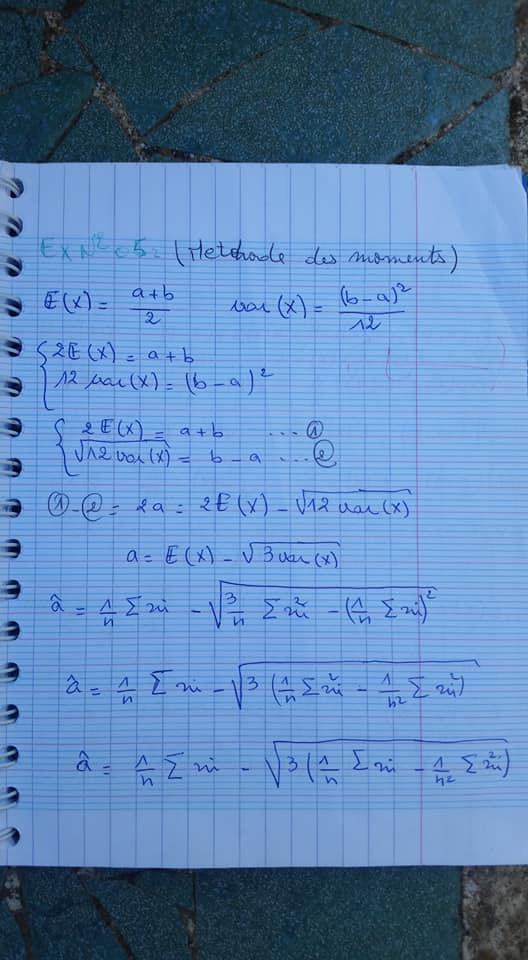 Ex N° 05: (Methode des moments)
E(x) = (a+b)/2    var(x) = (b-a)²/12
{ 2E(x) = a+b
12 var(x) = (b-a)²
{ 2E(x) = a+b ... ①
√(12 var(x)) = b-a ... ②
①-② = 2a = 2E(x) - √(12 var(x))
a = E(x) - √(3 var(x))
â = 1/n Σ xi - √(3/n Σ xi² - (1/n Σ xi)²)
â = 1/n Σ xi - √(3 (1/n Σ xi² - 1/n² Σ xi²))
â = 1/n Σ xi - √(3 (1/n Σ xi - 1/n² Σ xi²))